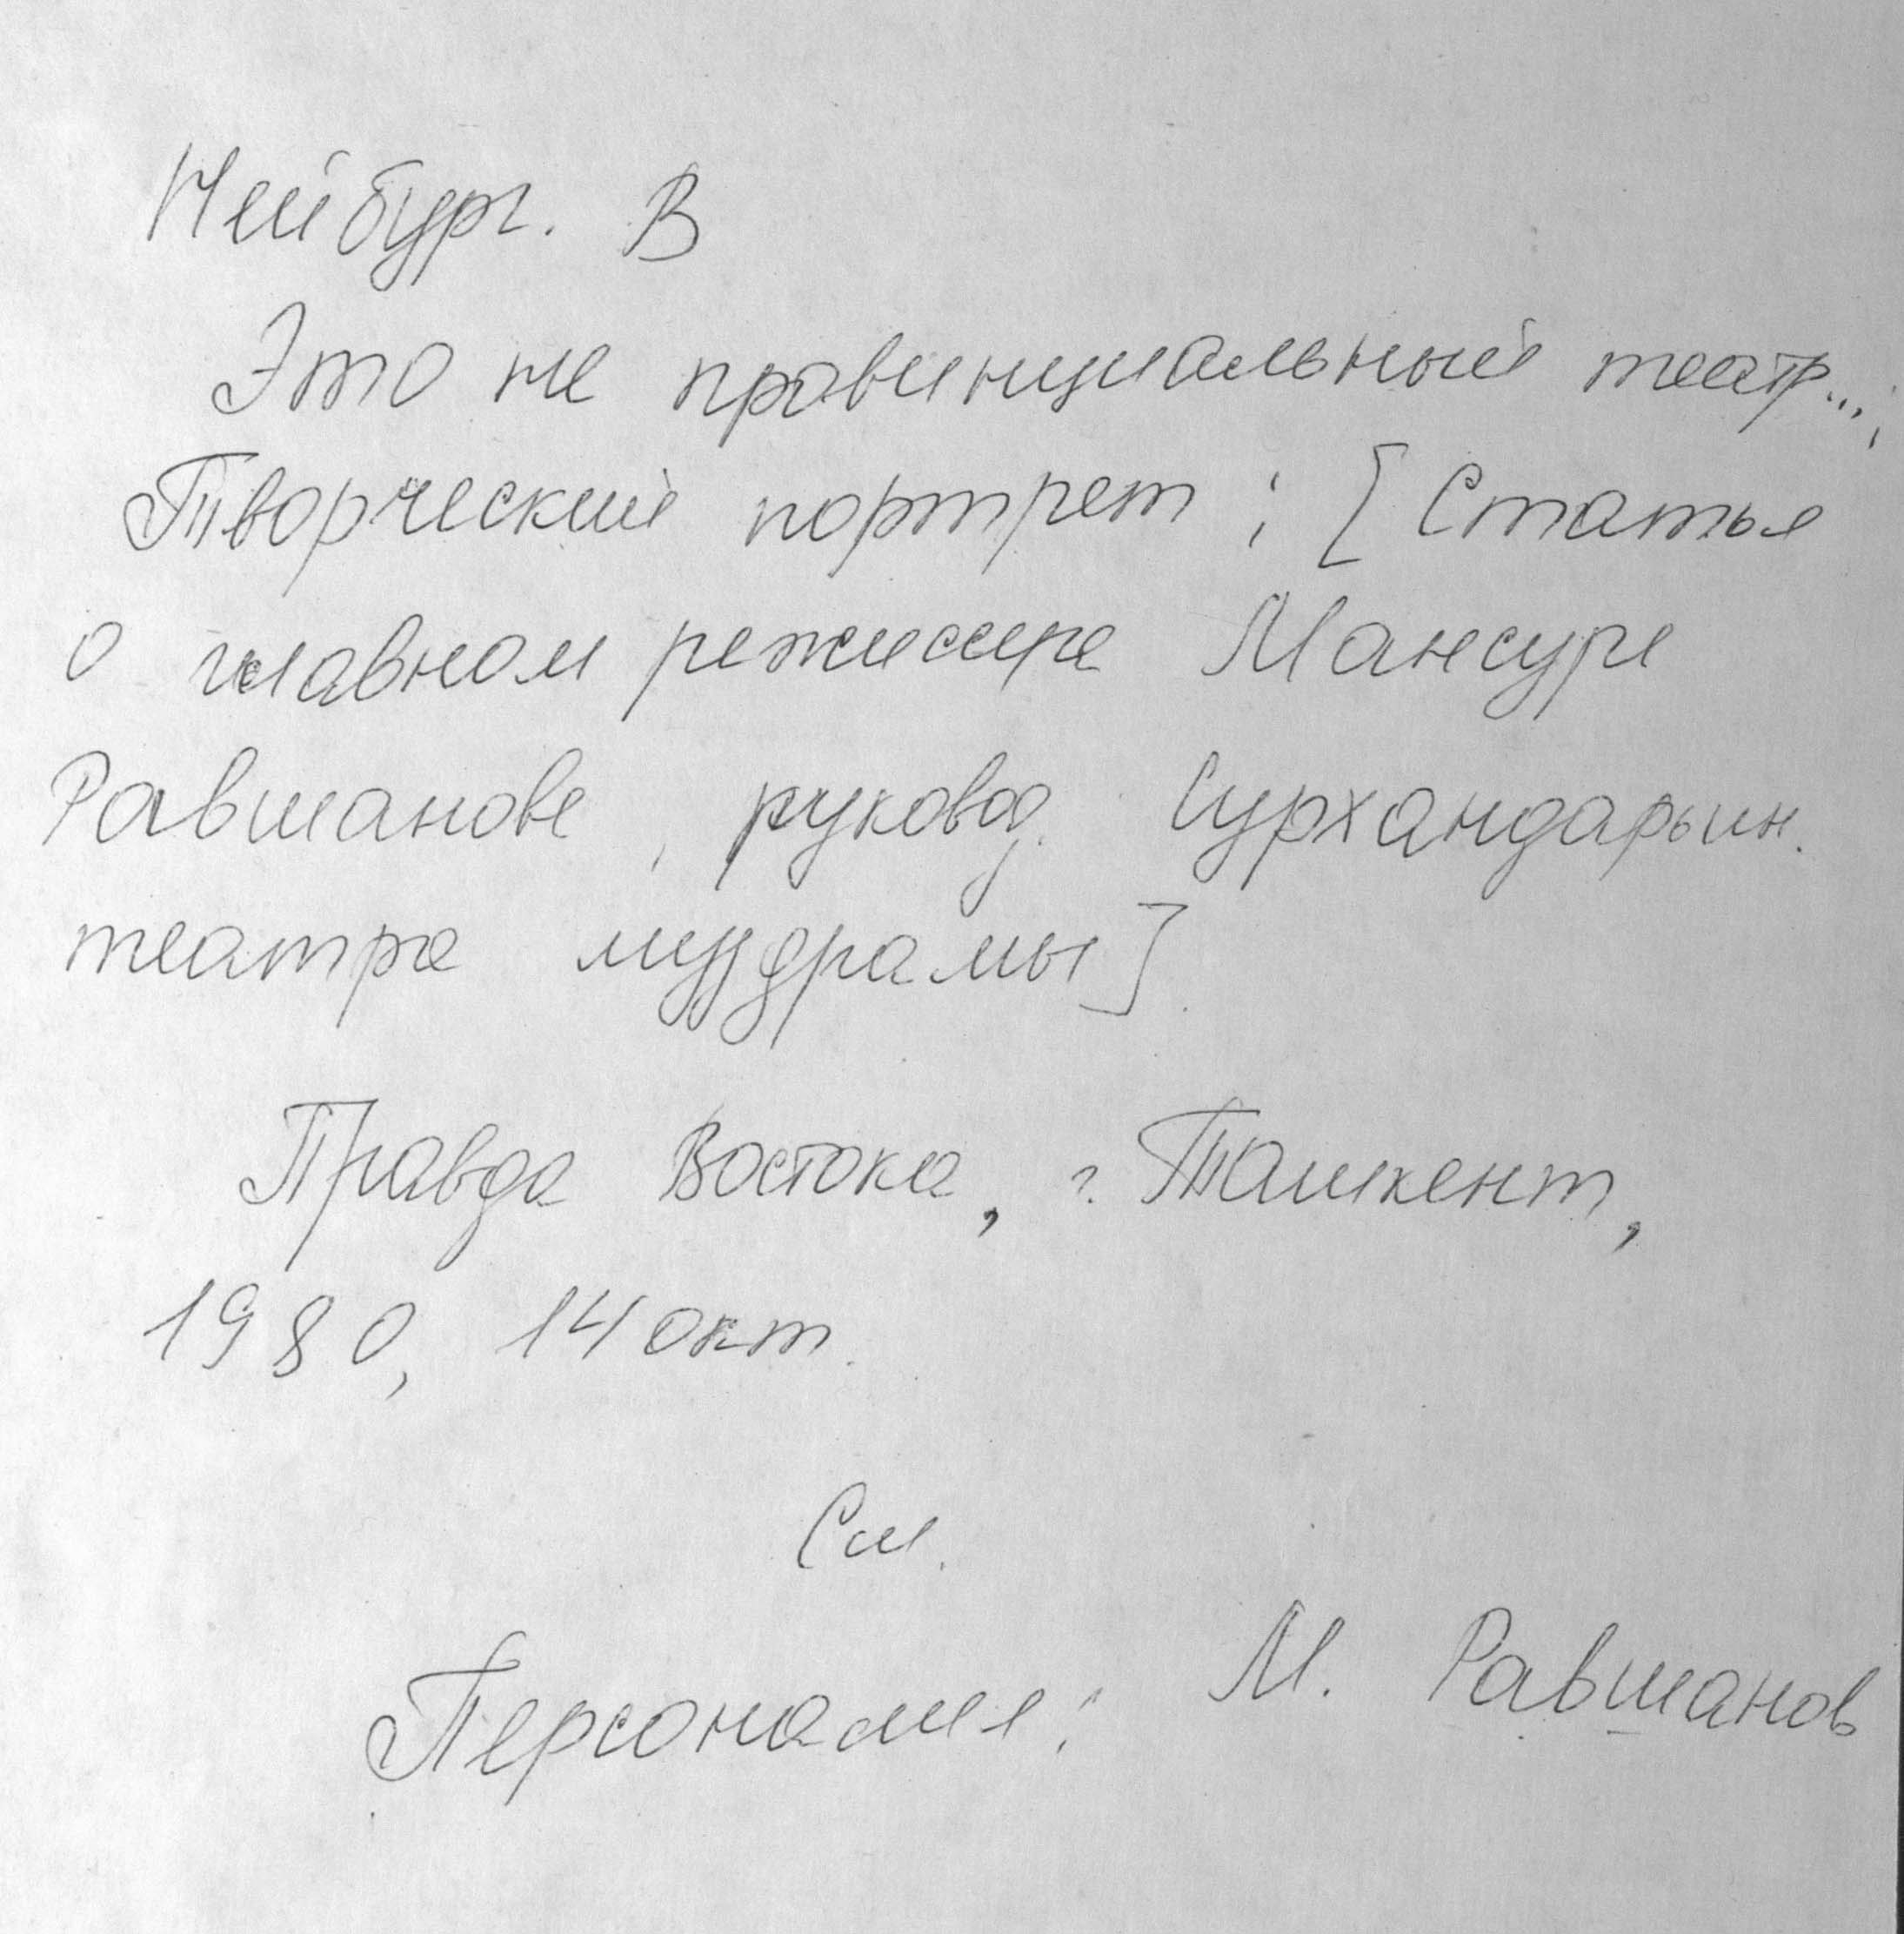 Нейбург. В
Это не провинциальный театр...;
Творческий портрет; [Статья
о главном режиссере Мансуре
Равшанове, руковод. Сурхандарьин.
театра муздрамы].
Правда Востока, г. Ташкент,
1980, 14 окт.
См.
Персоналия: М. Равшанов